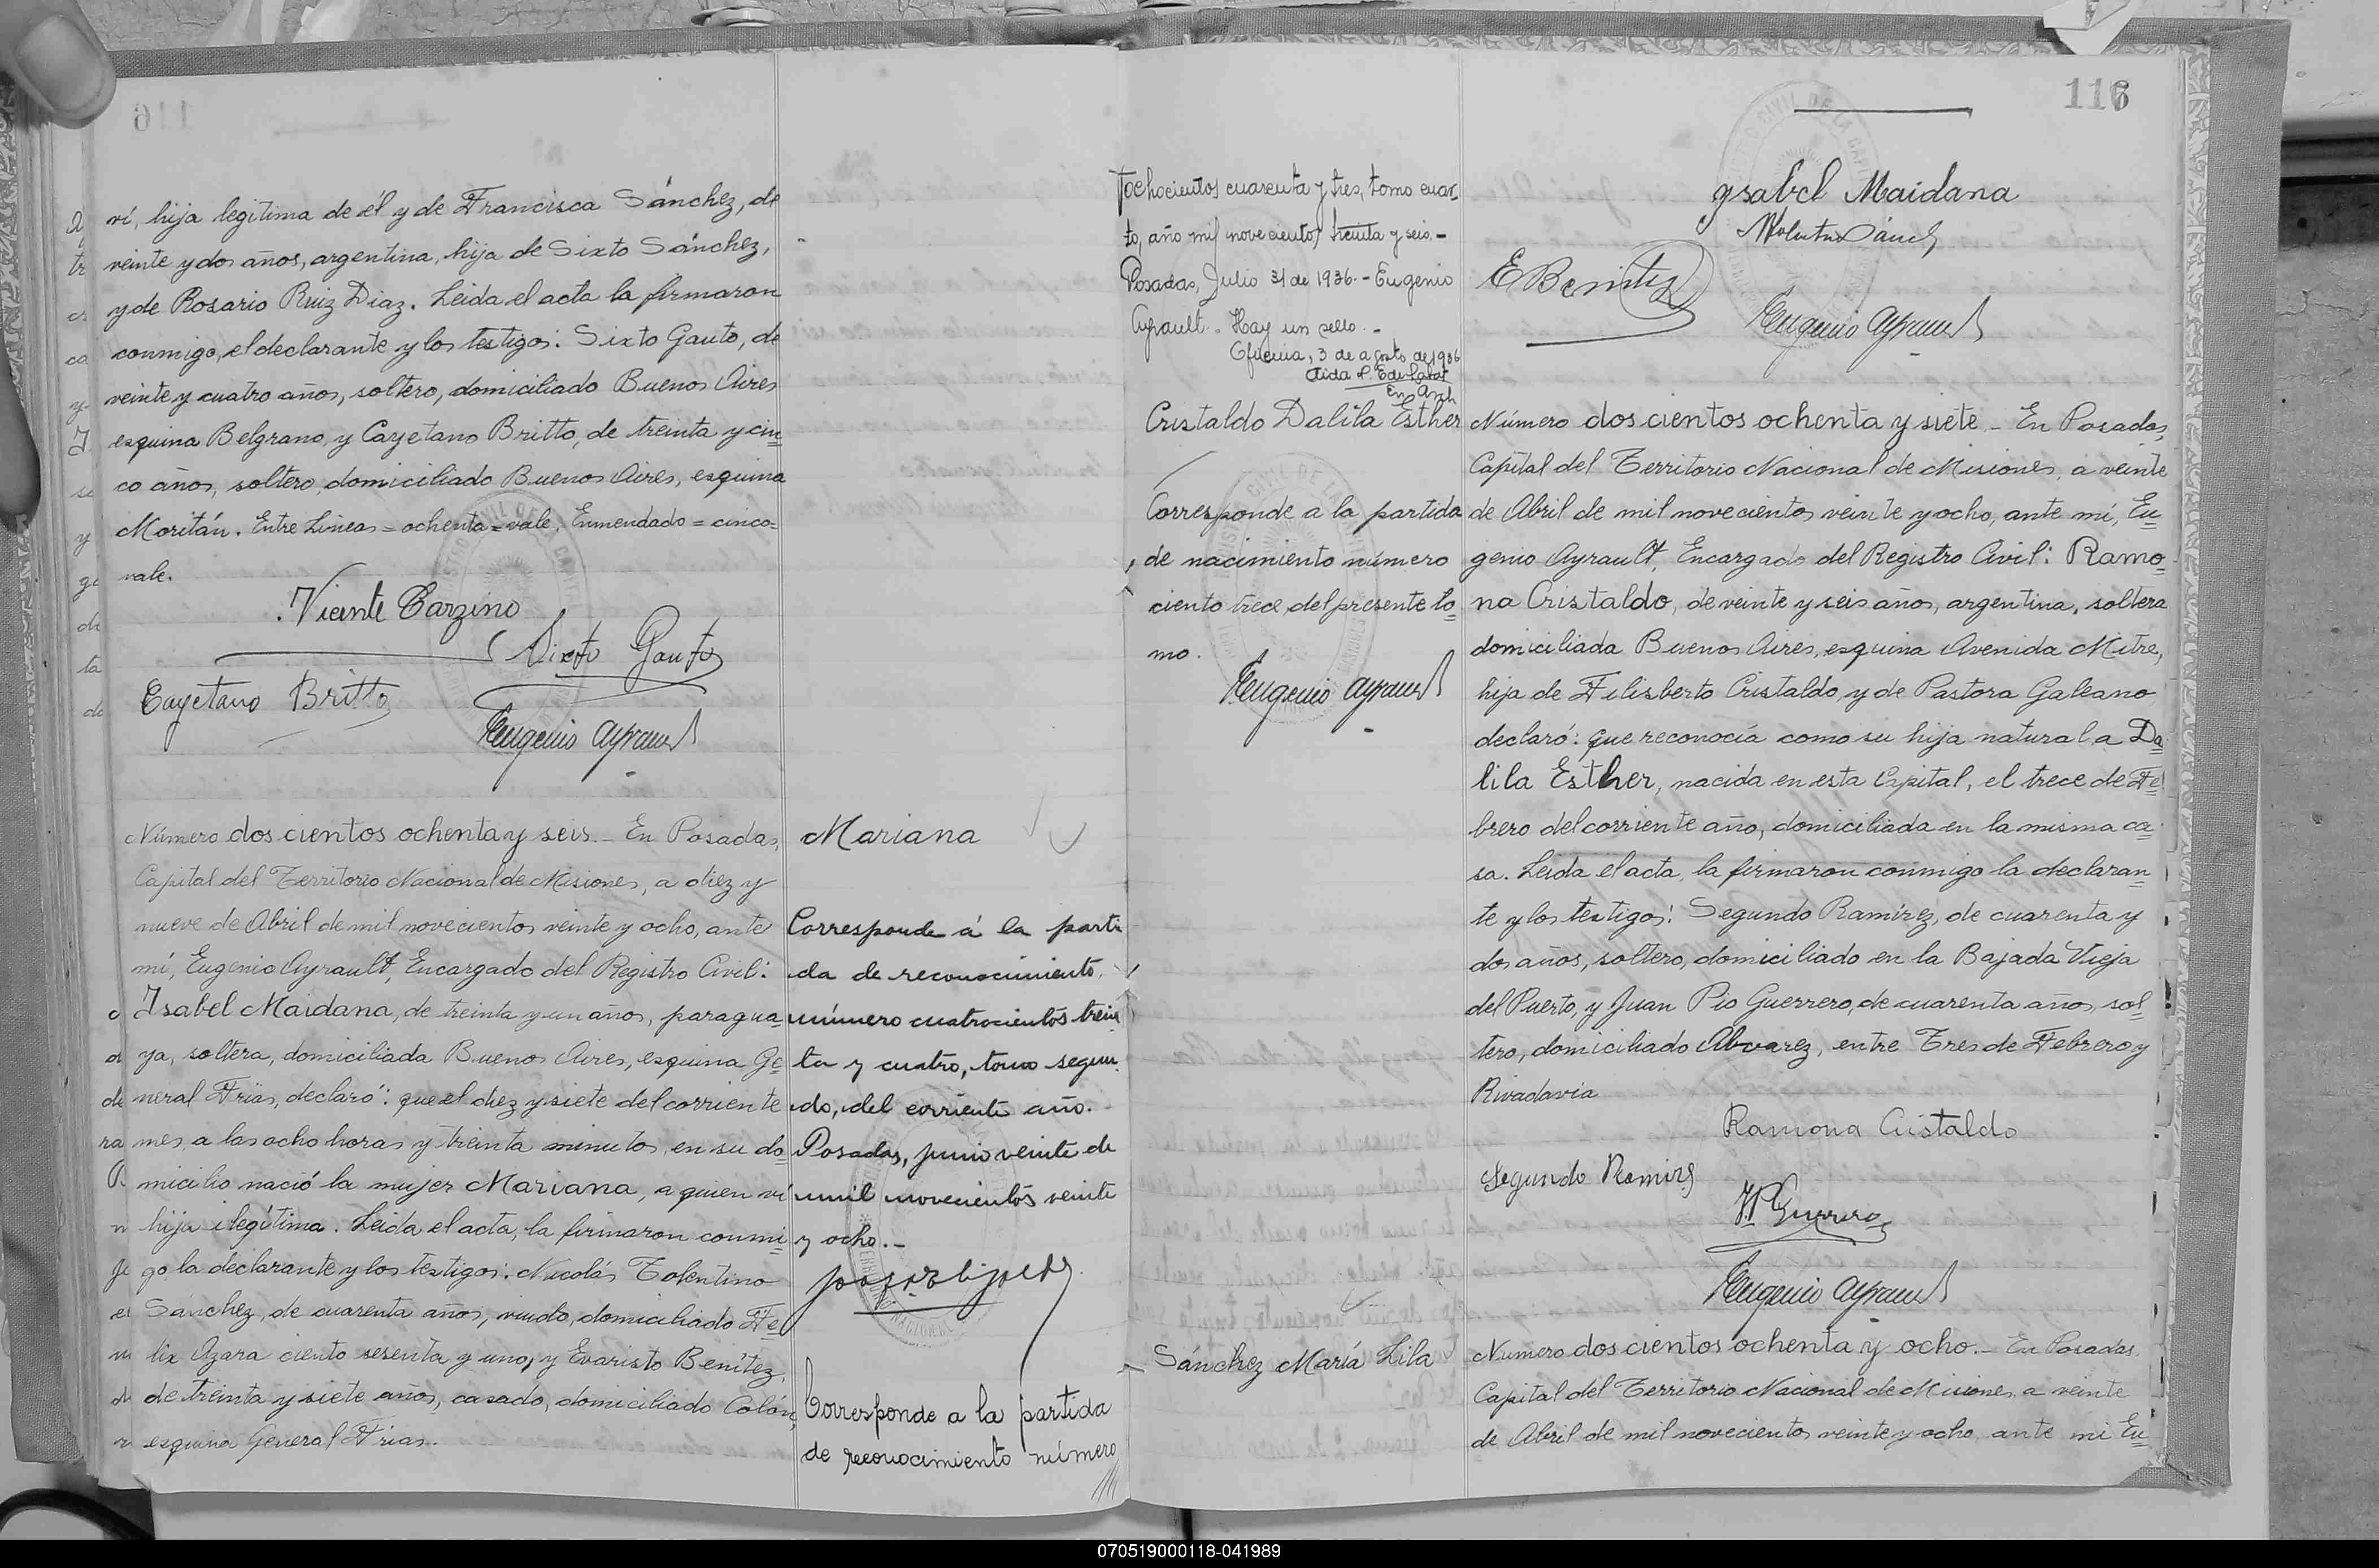 ví, hija legítima de él y de Francisca Sánchez, de
veinte y dos años, argentina, hija de Sixto Sánchez,
y de Rosario Ruiz Diaz. Leida el acta la firmaron
conmigo, el declarante y los testigos: Sixto Gauto, de
veinte y cuatro años, soltero, domiciliado Buenos Aires
esquina Belgrano, y Cayetano Britto, de treinta y cin=
co años, soltero, domiciliado Buenos Aires, esquina
Moritán. Entre Lineas = ochenta = vale. Enmendado = cinco =
vale.
Vicente Carzino
Sixto Gauto
Cayetano Britto
Eugenio Ayrault
Número dos cientos ochenta y seis.- En Posadas,
Capital del Territorio Nacional de Misiones, a diez y
nueve de Abril de mil novecientos veinte y ocho, ante
mí, Eugenio Ayrault, Encargado del Registro Civil:
Isabel Maidana, de treinta y un años, paragua=
ya, soltera, domiciliada Buenos Aires, esquina Ge=
neral Frías, declaró: que el diez y siete del corriente
mes, a las ocho horas y treinta minutos, en su do=
micilio nació la mujer Mariana, a quien ví
hija ilegítima. Leida el acta, la firmaron conmi=
go la declarante y los testigos: Nicolás Tolentino
Sánchez, de cuarenta años, viudo, domiciliado Fe=
lix Azara ciento sesenta y uno, y Evaristo Benítez,
de treinta y siete años, casado, domiciliado Colón,
esquina General Frias.
Mariana
Corresponde á la parti
da de reconocimiento,
número cuatrocientos trein
ta y cuatro, tomo segun
do, del corriente año.
Posadas, junio veinte de
mil novecientos veinte
y ocho.-
Corresponde a la partida
de reconocimiento número
ochocientos cuarenta y tres, tomo cuar-
to, año mil novecientos treinta y seis.-
Posadas, Julio 31 de 1936.- Eugenio
Ayrault.- Hay un sello.-
Oficina, 3 de agosto de 1936
Cristaldo Dalila Esther
Corresponde a la partida
de nacimiento número
ciento trece, del presente to=
mo.
Eugenio Ayrault
Sánchez María Lila
116
Ysabel Maidana
E Benitez
Eugenio Ayrault
Número dos cientos ochenta y siete.- En Posadas,
Capital del Territorio Nacional de Misiones, a veinte
de Abril de mil novecientos veinte y ocho, ante mí, Eu=
genio Ayrault, Encargado del Registro Civil: Ramo=
na Cristaldo, de veinte y seis años, argentina, soltera
domiciliada Buenos Aires, esquina Avenida Mitre,
hija de Filisberto Cristaldo, y de Pastora Galeano
declaró: que reconocía como su hija natural a Da=
lila Esther, nacida en esta Capital, el trece de Fe=
brero del corriente año, domiciliada en la misma ca=
sa. Leida el acta, la firmaron conmigo la declaran=
te y los testigos: Segundo Ramírez, de cuarenta y
dos años, soltero, domiciliado en la Bajada Vieja
del Puerto, y Juan Pio Guerrero, de cuarenta años, sol=
tero, domiciliado Alvarez, entre Tres de Febrero y
Rivadavia
Ramona Cristaldo
Segundo Ramirez
J.P. Guerrero
Eugenio Ayrault
Número dos cientos ochenta y ocho.- En Posadas,
Capital del Territorio Nacional de Misiones, a veinte
de Abril de mil novecientos veinte y ocho, ante mí Eu=
070519000118-041989